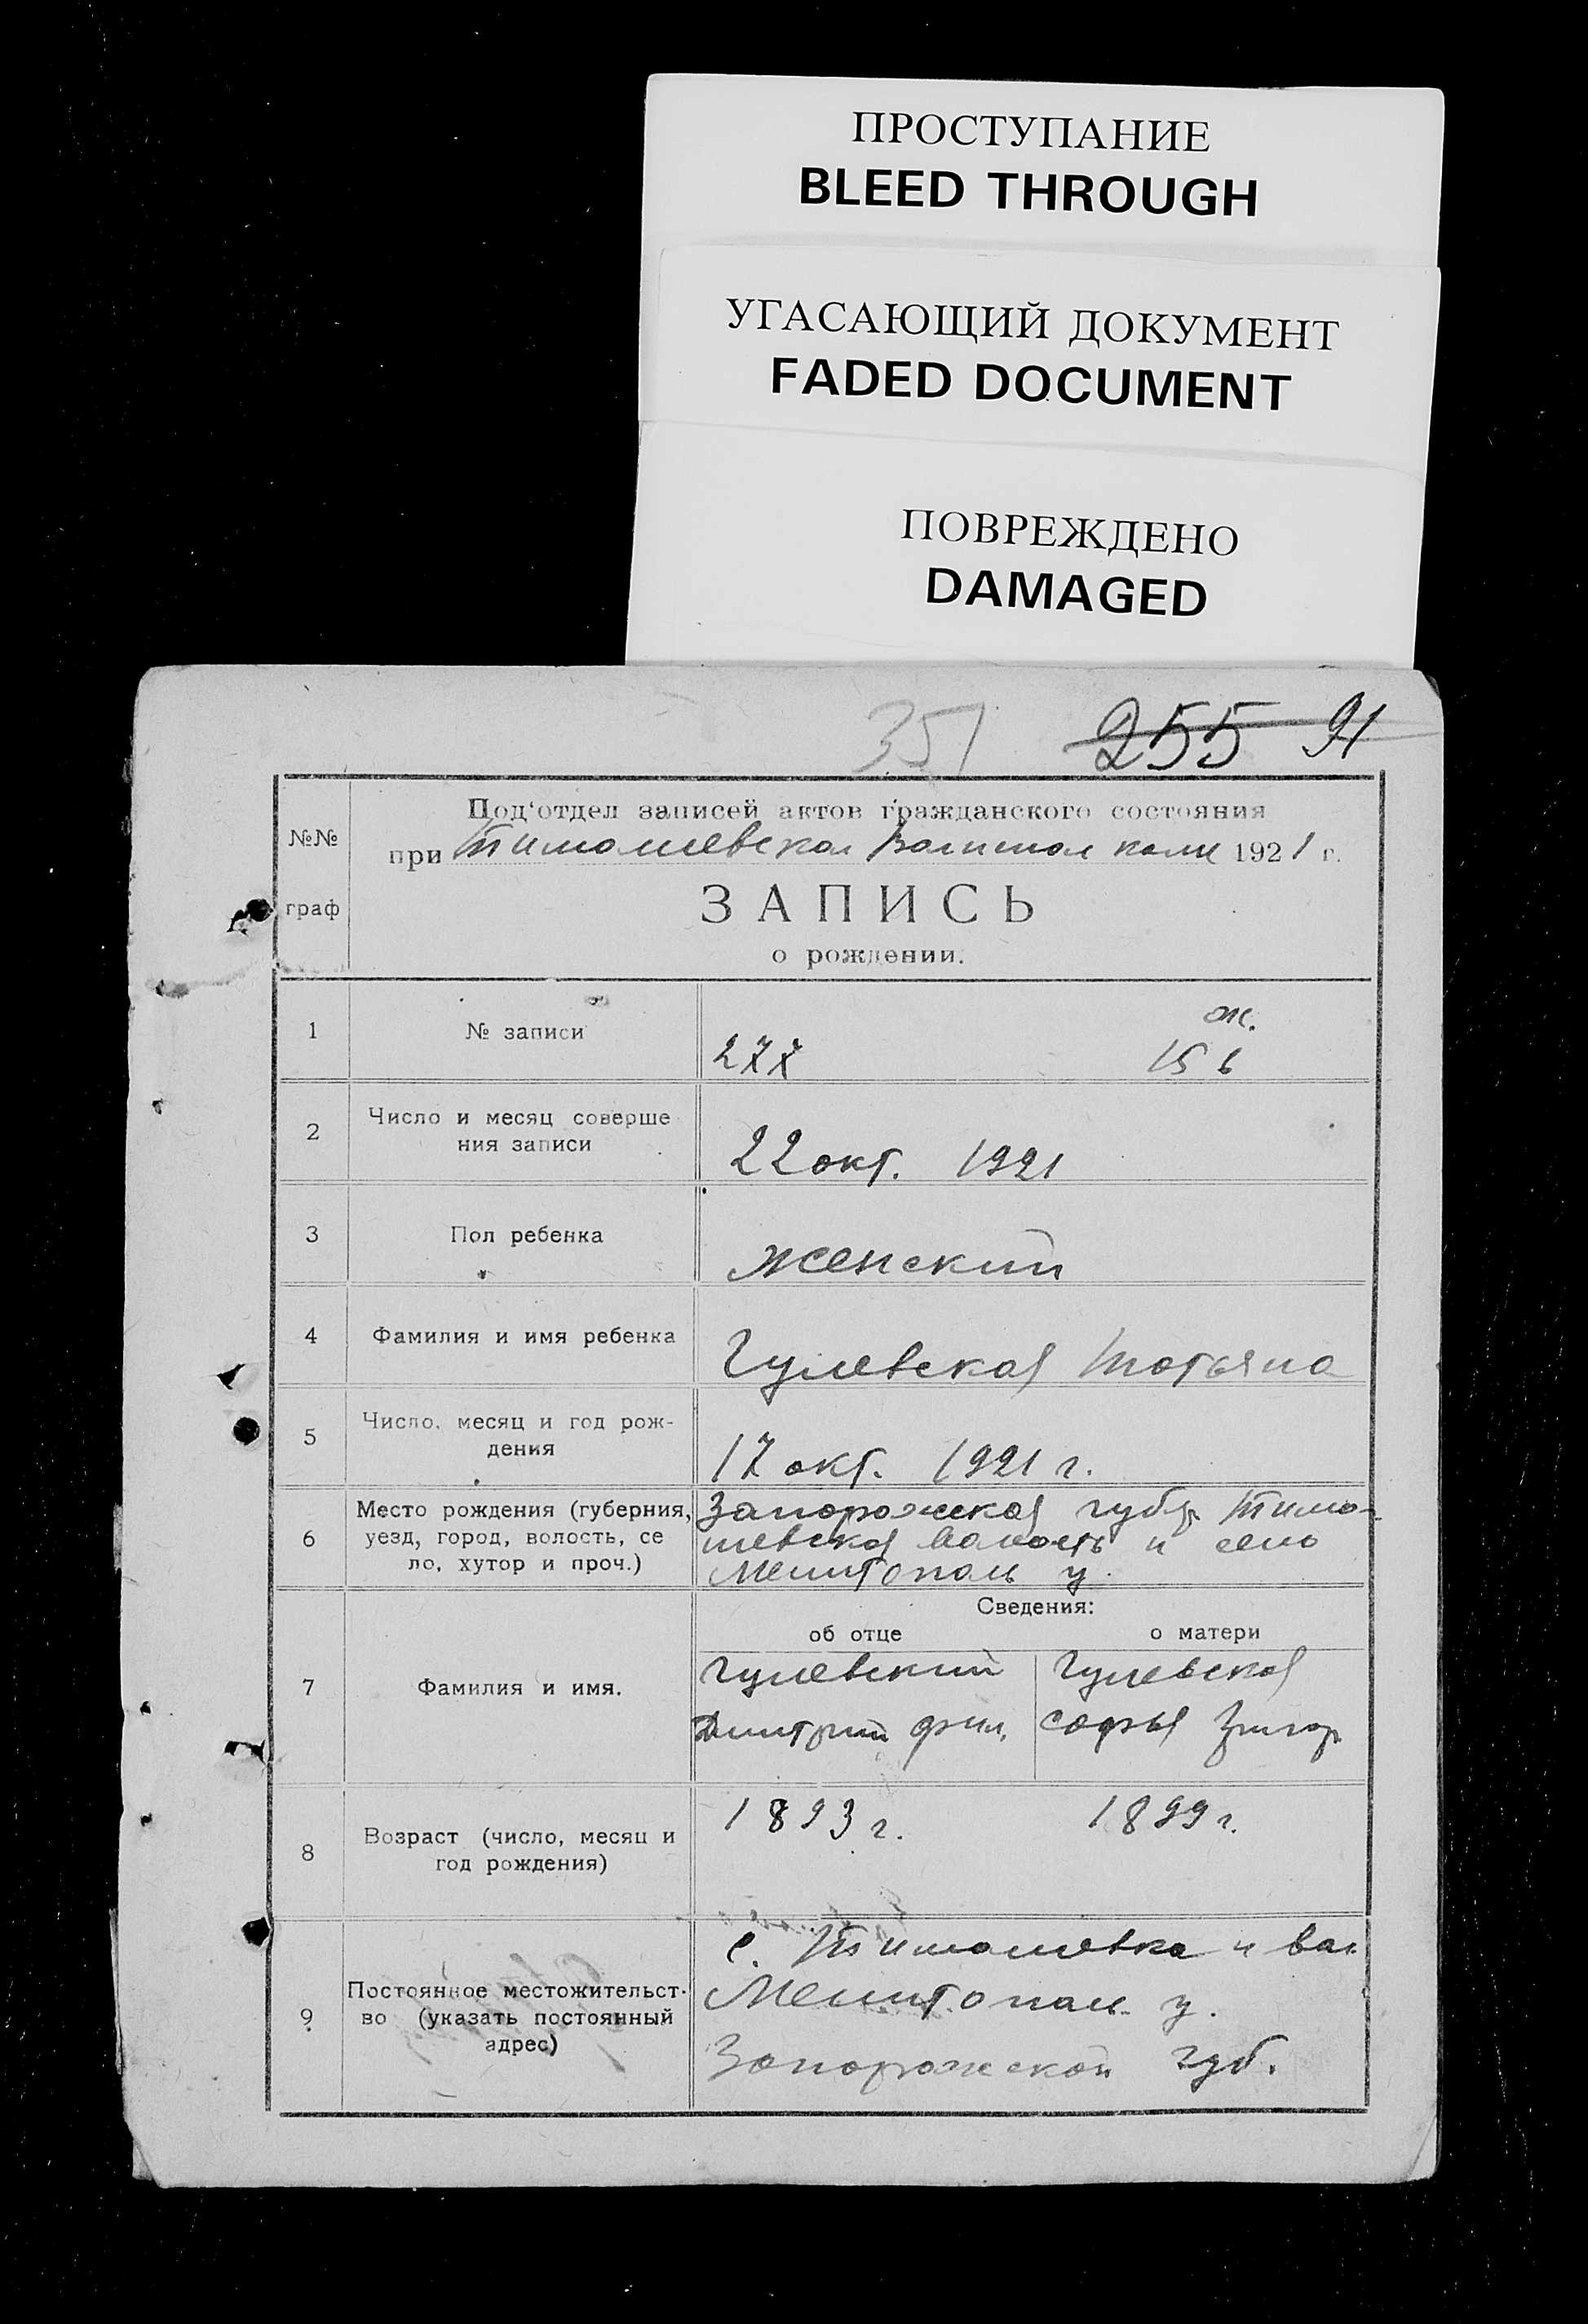 ПРОСТУПАНИЕ
BLEED THROUGH
УГАСАЮЩИЙ ДОКУМЕНТ
FADED DOCUMENT
ПОВРЕЖДЕНО
DAMAGED
351 255 91
№№
граф
Под'отдел записей актов гражданского состояния
при Тимошевской 1921 г.
ЗАПИСЬ
о рождении.
1 № записи 277 ж. 156
2 Число и месяц соверше
ния записи
22 окт. 1921
3 Пол ребенка женский
4 Фамилия и имя ребенка Гулевская Татьяна
5 Число, месяц и год рож-
дения
17 окт. 1921 г.
6 Место рождения (губерния,
уезд, город, волость, се
ло, хутор и проч.)
Запорожская губ Тимо-
шевская волость и село
Мелитополь у.
Сведения:
об отце о матери
7 Фамилия и имя.
Гулевский
Дмитрий фил.
Гулевская
Софья Григор
8 Возраст (число, месяц и
год рождения)
1893 г. 1899 г.
9 Постоянное местожительст-
во (указать постоянный
адрес)
с. Тимошовка и вол
Мелитопол. у.
Запорожской губ.